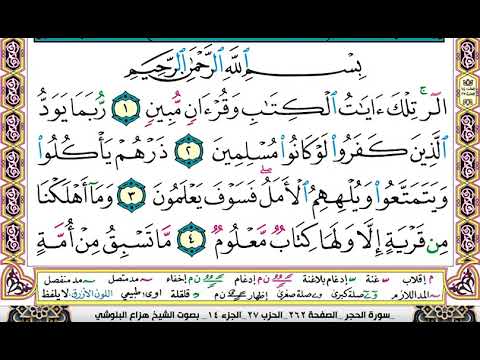 بِسْمِ ٱللَّهِ ٱلرَّحْمَٰنِ ٱلرَّحِيمِ
الٓرۚ تِلْكَ ءَايَٰتُ ٱلْكِتَٰبِ وَقُرْءَانٍ مُّبِينٍ ١ رُّبَمَا يَوَدُّ
ٱلَّذِينَ كَفَرُوا۟ لَوْ كَانُوا۟ مُسْلِمِينَ ٢ ذَرْهُمْ يَأْكُلُوا۟
وَيَتَمَتَّعُوا۟ وَيُلْهِهِمُ ٱلْأَمَلُۖ فَسَوْفَ يَعْلَمُونَ ٣ وَمَآ أَهْلَكْنَا
مِن قَرْيَةٍ إِلَّا وَلَهَا كِتَابٌ مَّعْلُومٌ ٤ مَّا تَسْبِقُ مِنْ أُمَّةٍ
م إقلاب غنة إدغام بلاغنة ن م إدغام ن م إخفاء مد متصل مد منفصل
المد اللازم صلة كبرى صلة صغرى إظهار ن م قلقلة اوى: طبيعي اللون الأزرق: لا يلفظ
_سورة الحجر _الصفحة ٢٦٢_الحزب ٢٧_الجزء ١٤_بصوت الشيخ هزاع البلوشي